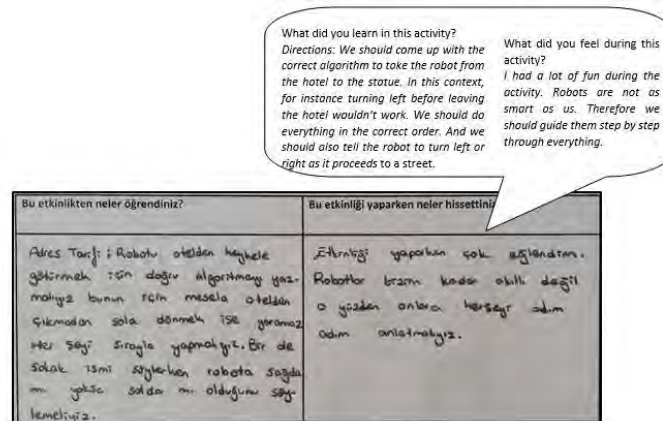 What did you learn in this activity?
Directions: We should come up with the
correct algorithm to take the robot from
the hotel to the statue. In this context,
for instance turning left before leaving
the hotel wouldn't work. We should do
everything in the correct order. And we
should also tell the robot to turn left or
right as it proceeds to a street.
What did you feel during this
activity?
I had a lot of fun during the
activity. Robots are not as
smart as us. Therefore we
should guide them step by step
through everything.
Bu etkinlikten neler öğrendiniz?
Adres Tarifi: Robotu otelden heykele
götürmek için doğru algoritmayı yaz-
malıyız bunun için mesela otelden
çıkmadan sola dönmek işe yaramaz
Her şeyi sırayla yapmalıyız. Bir de
sokak ismi söylerken robota sağda
mı yoksa solda mı olduğunu söy-
lemeliyiz.
Bu etkinliği yaparken neler hissettiniz
Etkinliği yaparken çok eğlendim.
Robotlar bizim kadar akıllı değil
o yüzden onlara herşeyi adım
adım anlatmalıyız.